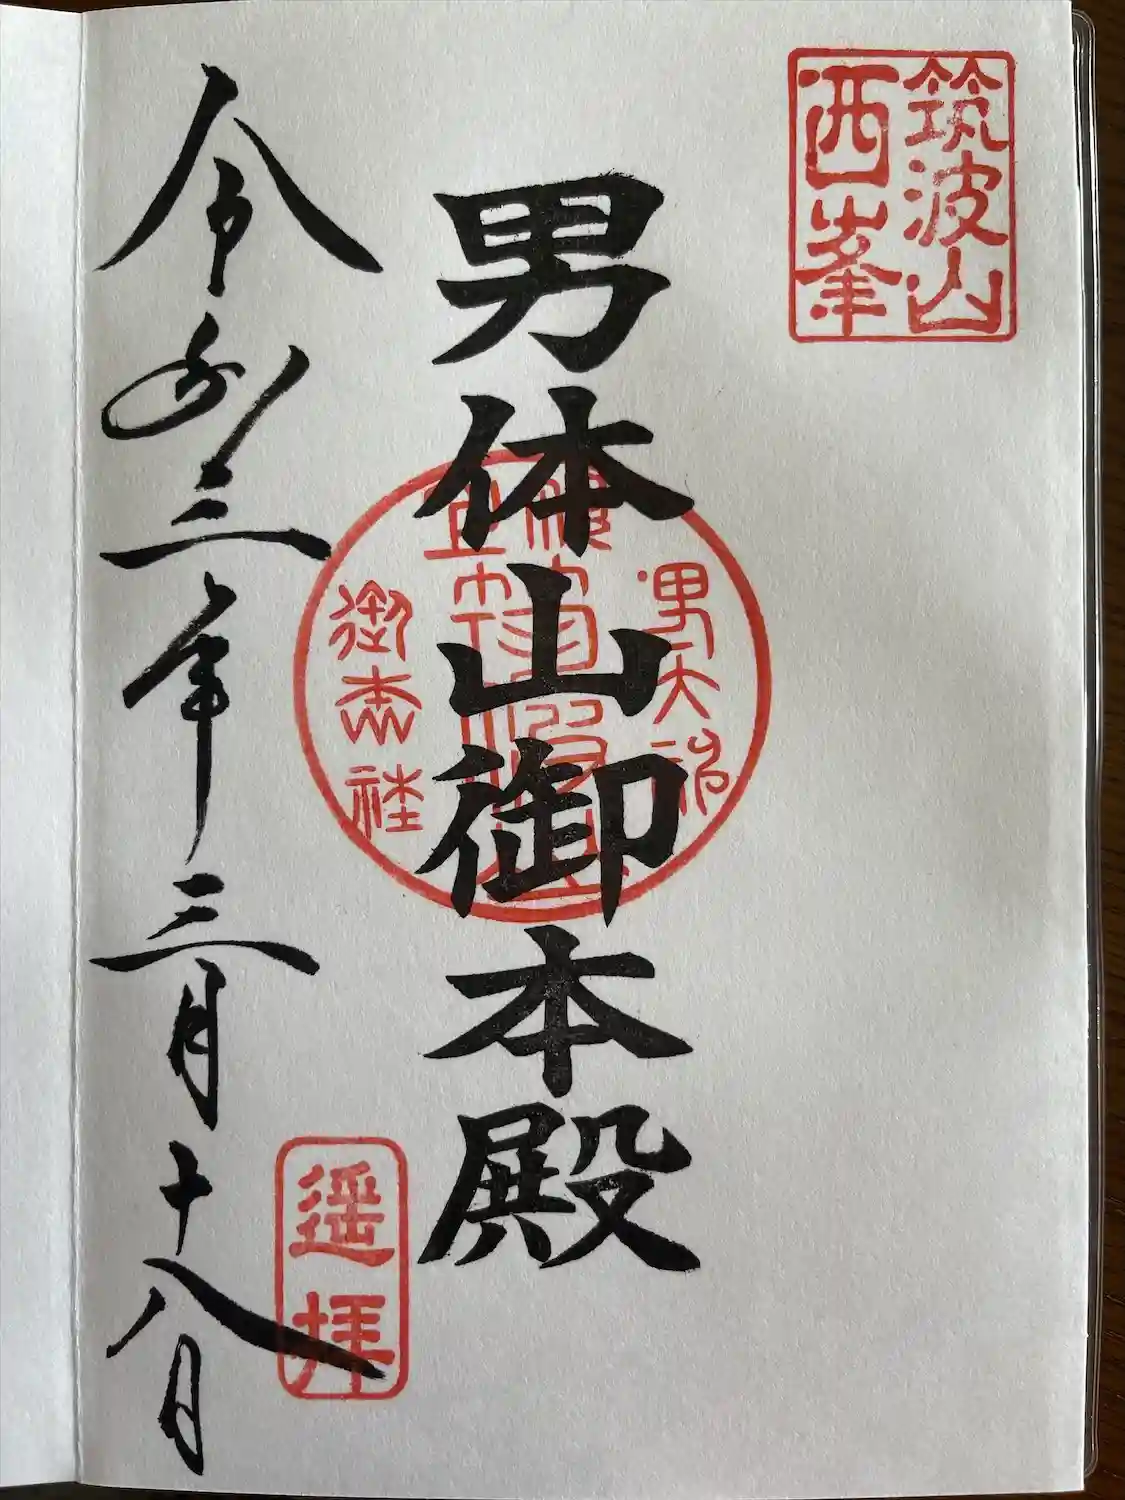 筑波山
西峯
男体山御本殿
男大神
御本社
遥拝
令和三年三月十八日